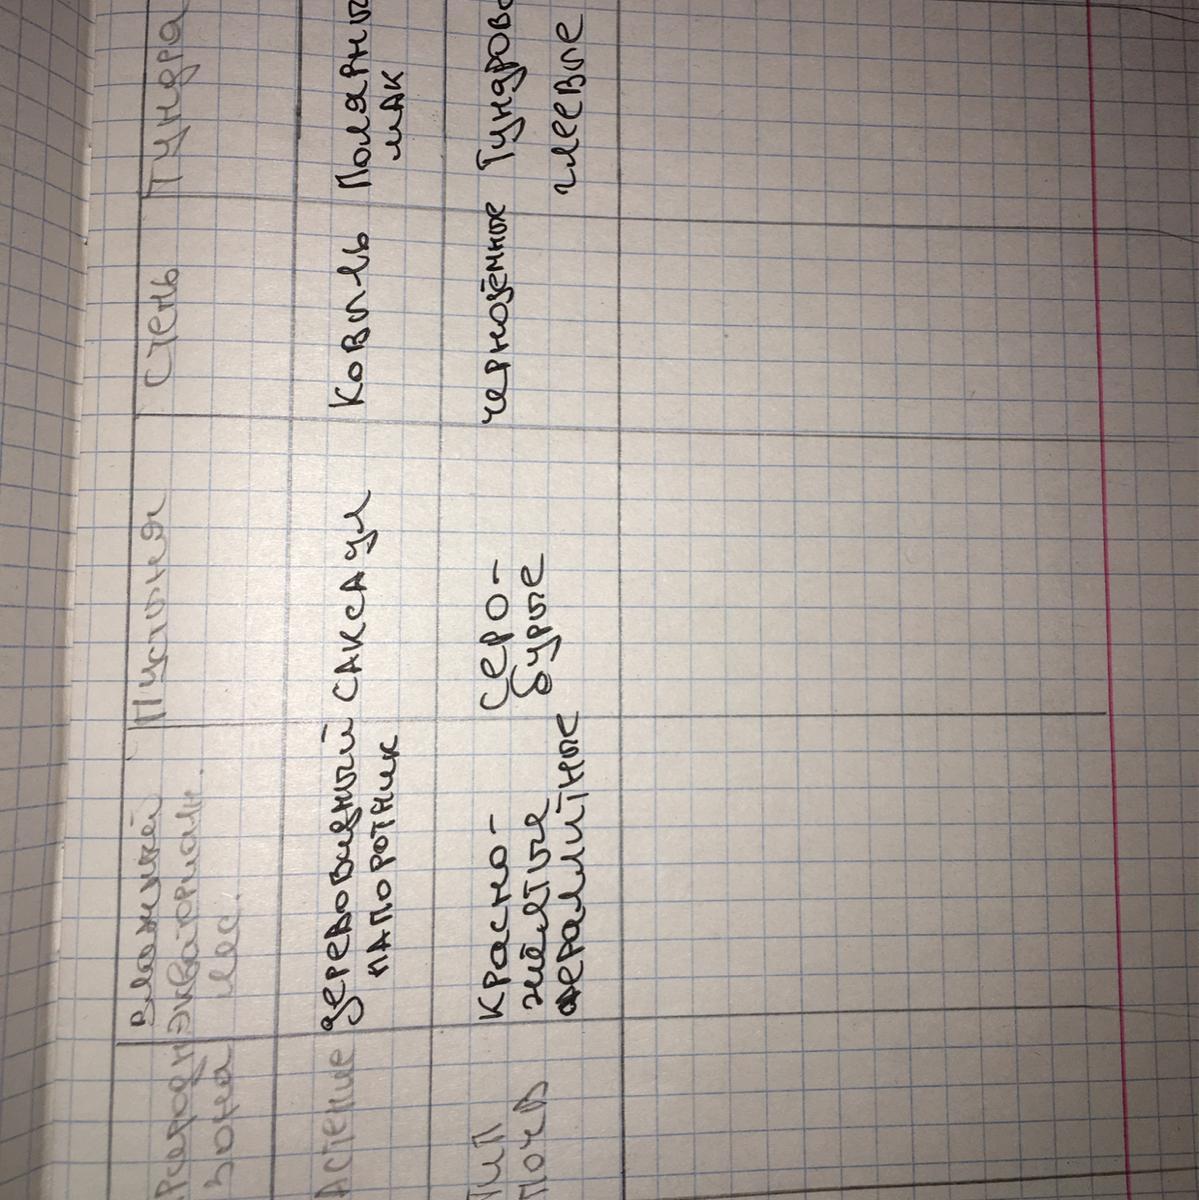 Природн
зона
Влажный
экваториалн.
лес.
Пустыня
Степь
Тундра
Растение
деревовидный
папоротник
саксаул
Ковыль
Полярны
мак
Тип
почв
Красно-
жёлтые
ералитные
Серо-
бурые
чернозёмные
Тундрово
глеевые